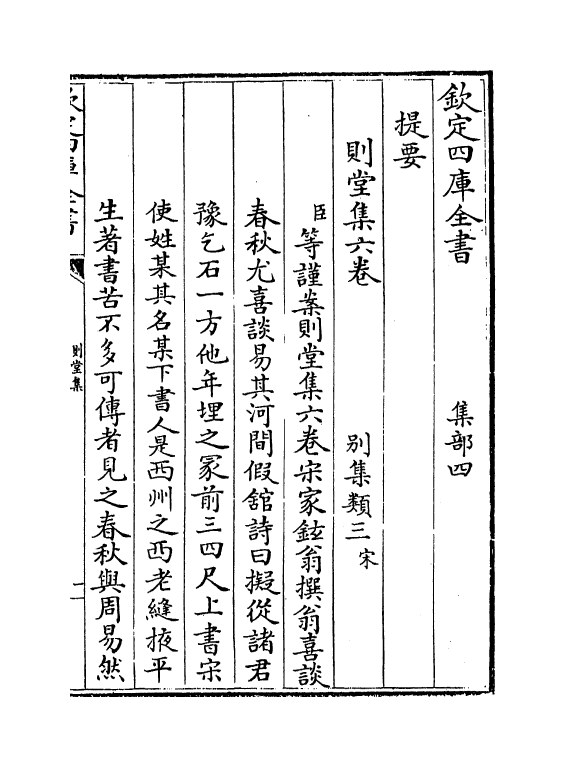 欽定四庫全書　集部四
提要
則堂集六卷　別集類三宋
臣等謹案則堂集六卷宋家鉉翁撰翁喜談
春秋尤喜談易其河間假舘詩曰擬從諸君
豫乞石一方他年埋之冢前三四尺上書宋
使姓某其名某下書人是西州之西老縫掖平
生著書苦不多可傳者見之春秋與周易然
欽定四庫全書
則堂集
一